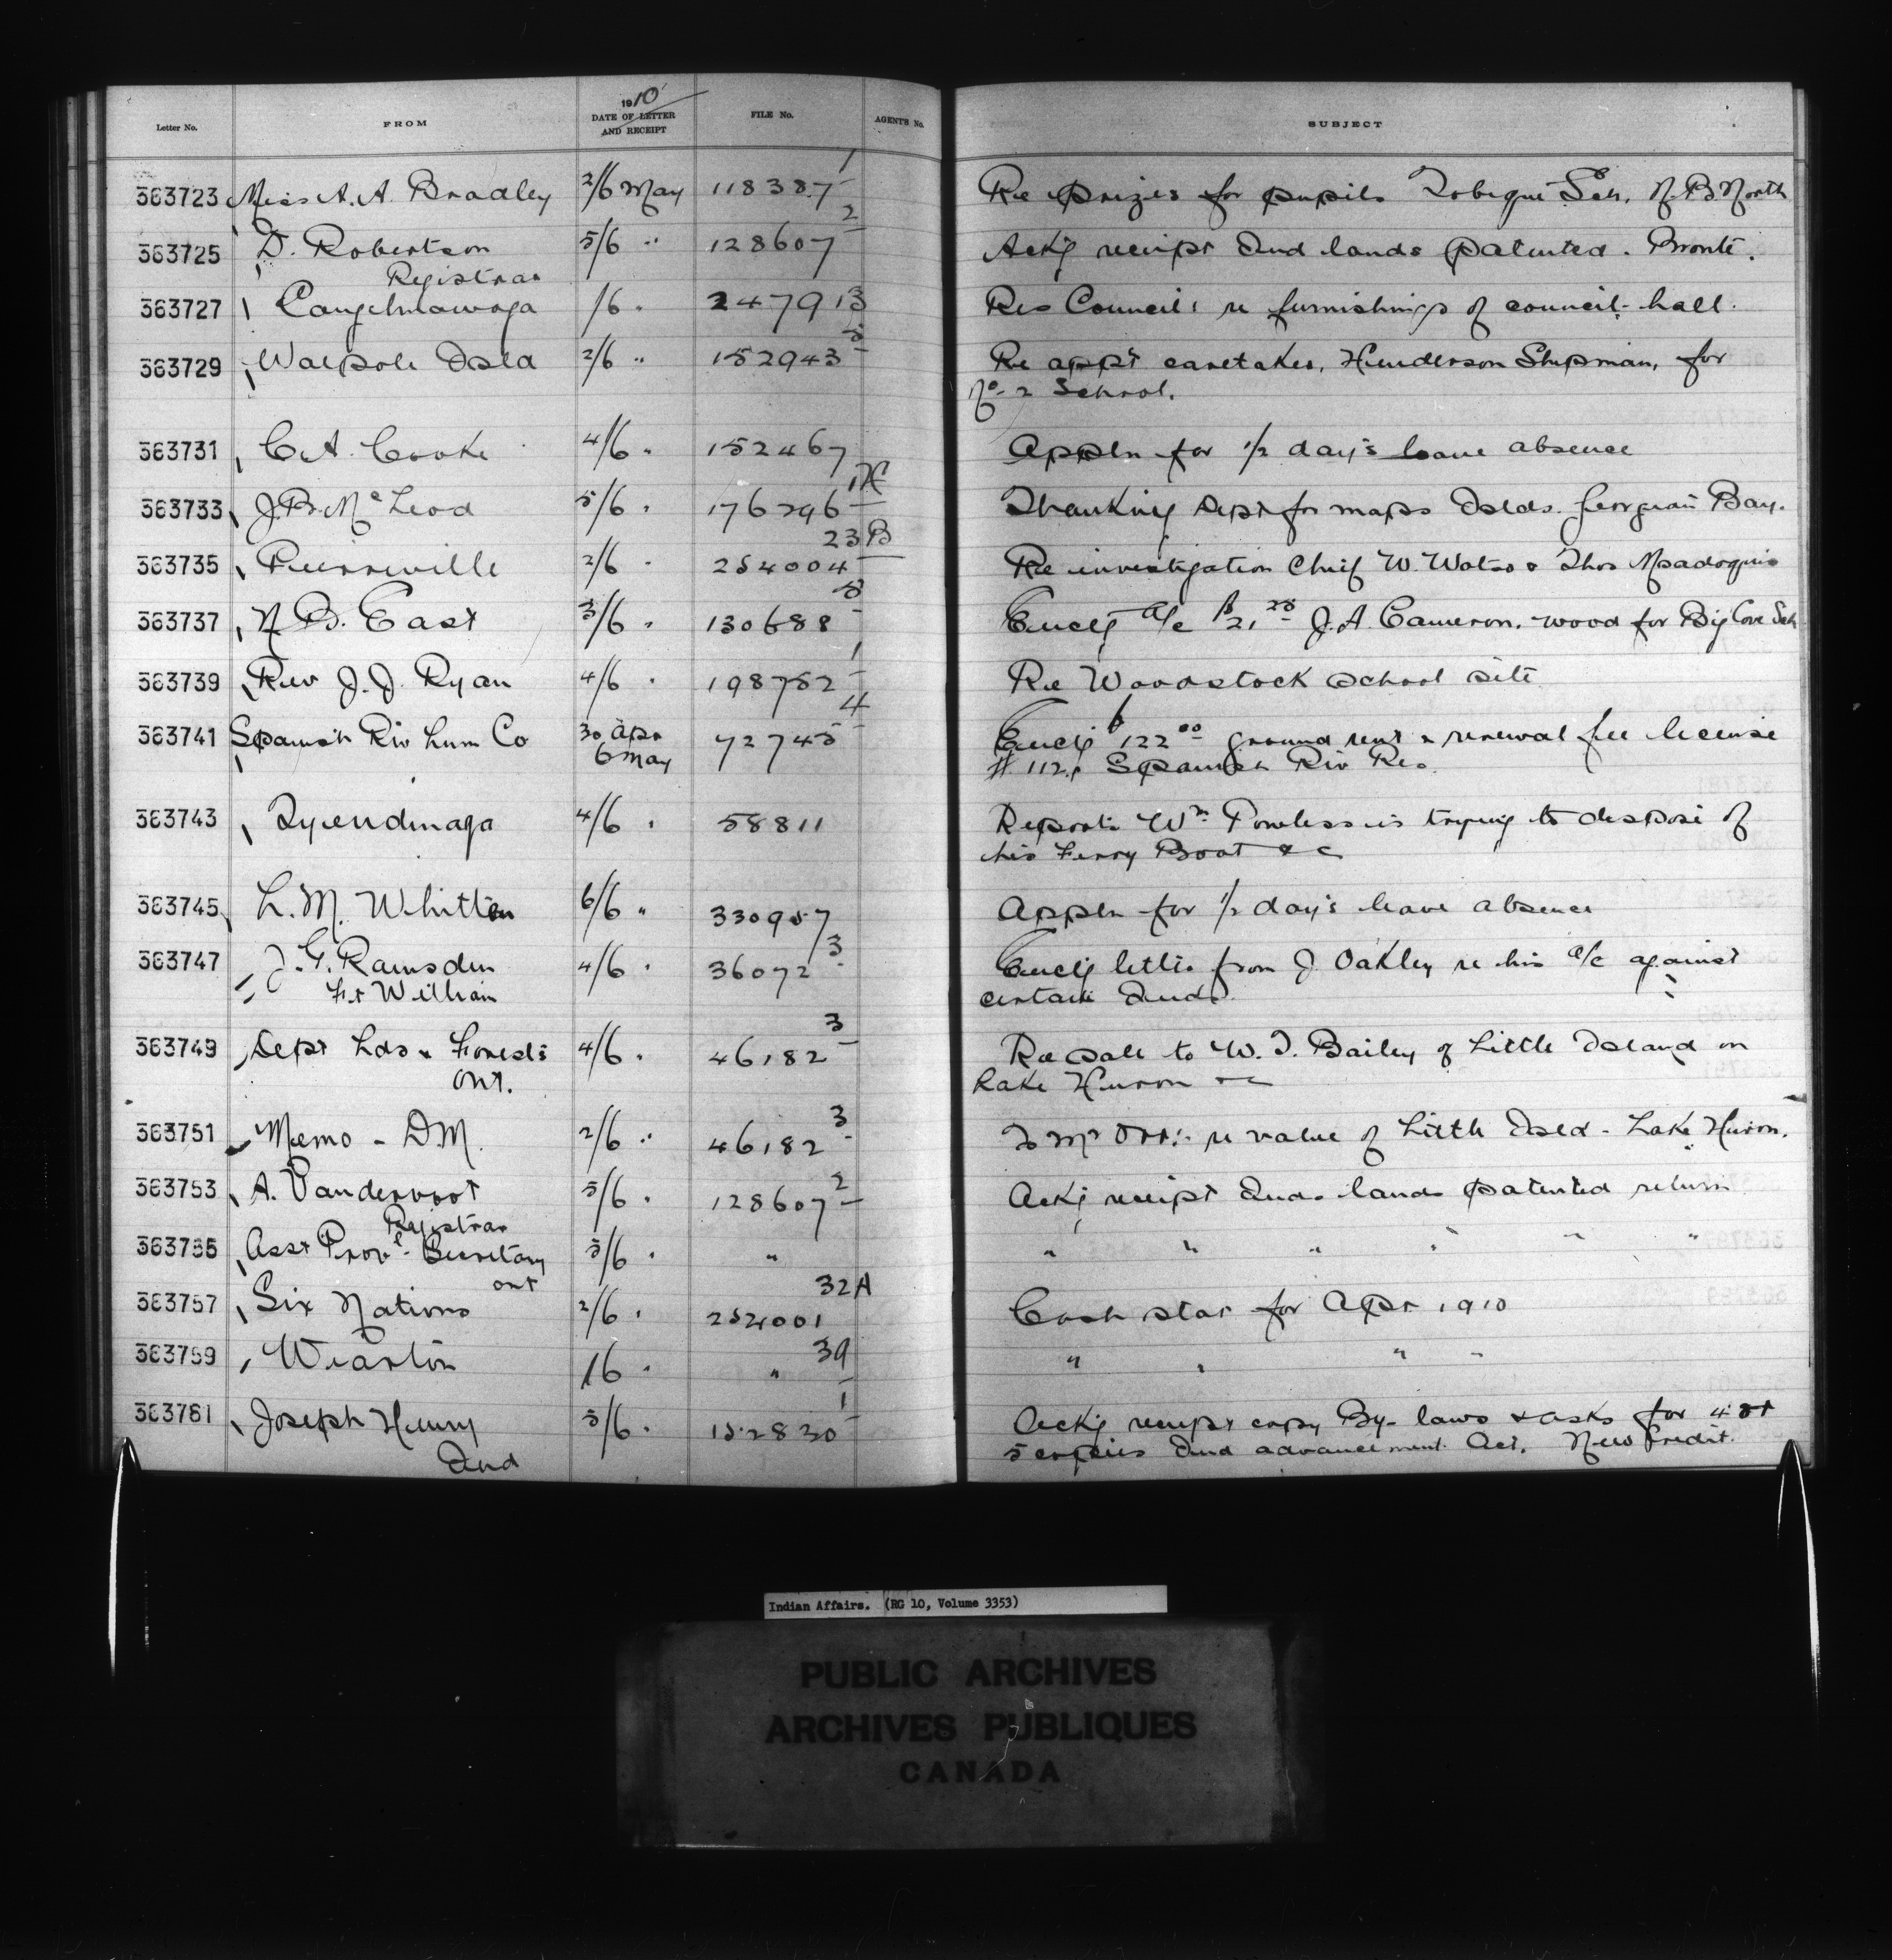 Letter No. FROM 1910 DATE OF LETTER AND RECEIPT FILE No. AGENT'S No. SUBJECT
363723 Miss A. A. Bradley 2/6 May 118387-1 Re prizes for pupils Tobique Sch. N.B. North
363725 D. Robertson 5/6 " 128607-2 Ackg receipt Ind lands patented. Bronté.
Registrar
363727 Caughnawaga /6 " 247913 Res Council: re furnishings of council-hall.
363729 Walpole Isld 2/6 " 152943-5 Re appt caretaker, Henderson Shipman, for
No. 2 School.
363731 C. A. Cooke 4/6 " 152467 Appln for 1/2 day's leave absence
363733 J. B. McLeod 5/6 " 176296 Thanking Dept for maps Islds. Georgian Bay.
363735 2/6 " 254004 23B Re investigation Chief W. Watso & Thos
363737 N. B. East 3/6 " 130688-5 Enclg a/c $21.25 J. A. Cameron. wood for Big Cove Sch
363739 Rev J. J. Ryan 4/6 " 198782-1 Re Woodstock school site
363741 Spanish Riv Lum Co 30 Apr 72745-4 Enclg $122.00 ground rent & renewal fee license
6 May # 112, Spanish Riv Res.
363743 Tyendinaga 4/6 " 58811 Reports Wm Powless is trying to dispose of
his Ferry Boat &c
363745 L. M. Whitten 6/6 " 330957 Appln for 1/2 day's leave absence
363747 J. G. Ramsden 4/6 " 36072-3 Enclg letter from J. Oakley re his a/c against
Ft William certain Inds.
363749 Dept Lds & Forests 4/6 " 46182-3 Re sale to W. T. Bailey of Little Island in
Ont. Lake Huron &c
363751 Memo - D.M. 2/6 " 46182-3 To Mr Orr: re value of Little Isld - Lake Huron.
363753 A. Vandervoort 5/6 " 128607-2 Ackg receipt Inds lands patented return
Registrar
363755 Asst Provl. Secretary 3/6 " " " " " " " "
Ont
363757 Six Nations 2/6 " 254001 32A Cash stat for Apr 1910
363759 Wiarton /6 " " 39 " " " "
363761 Joseph Henry 3/6 " 152830-1 Ackg receipt copy By-laws & asks for 4 or
Ind 5 copies Ind advancement Act. New Credit.
Indian Affairs. (RG 10, Volume 3353)
PUBLIC ARCHIVES
ARCHIVES PUBLIQUES
CANADA